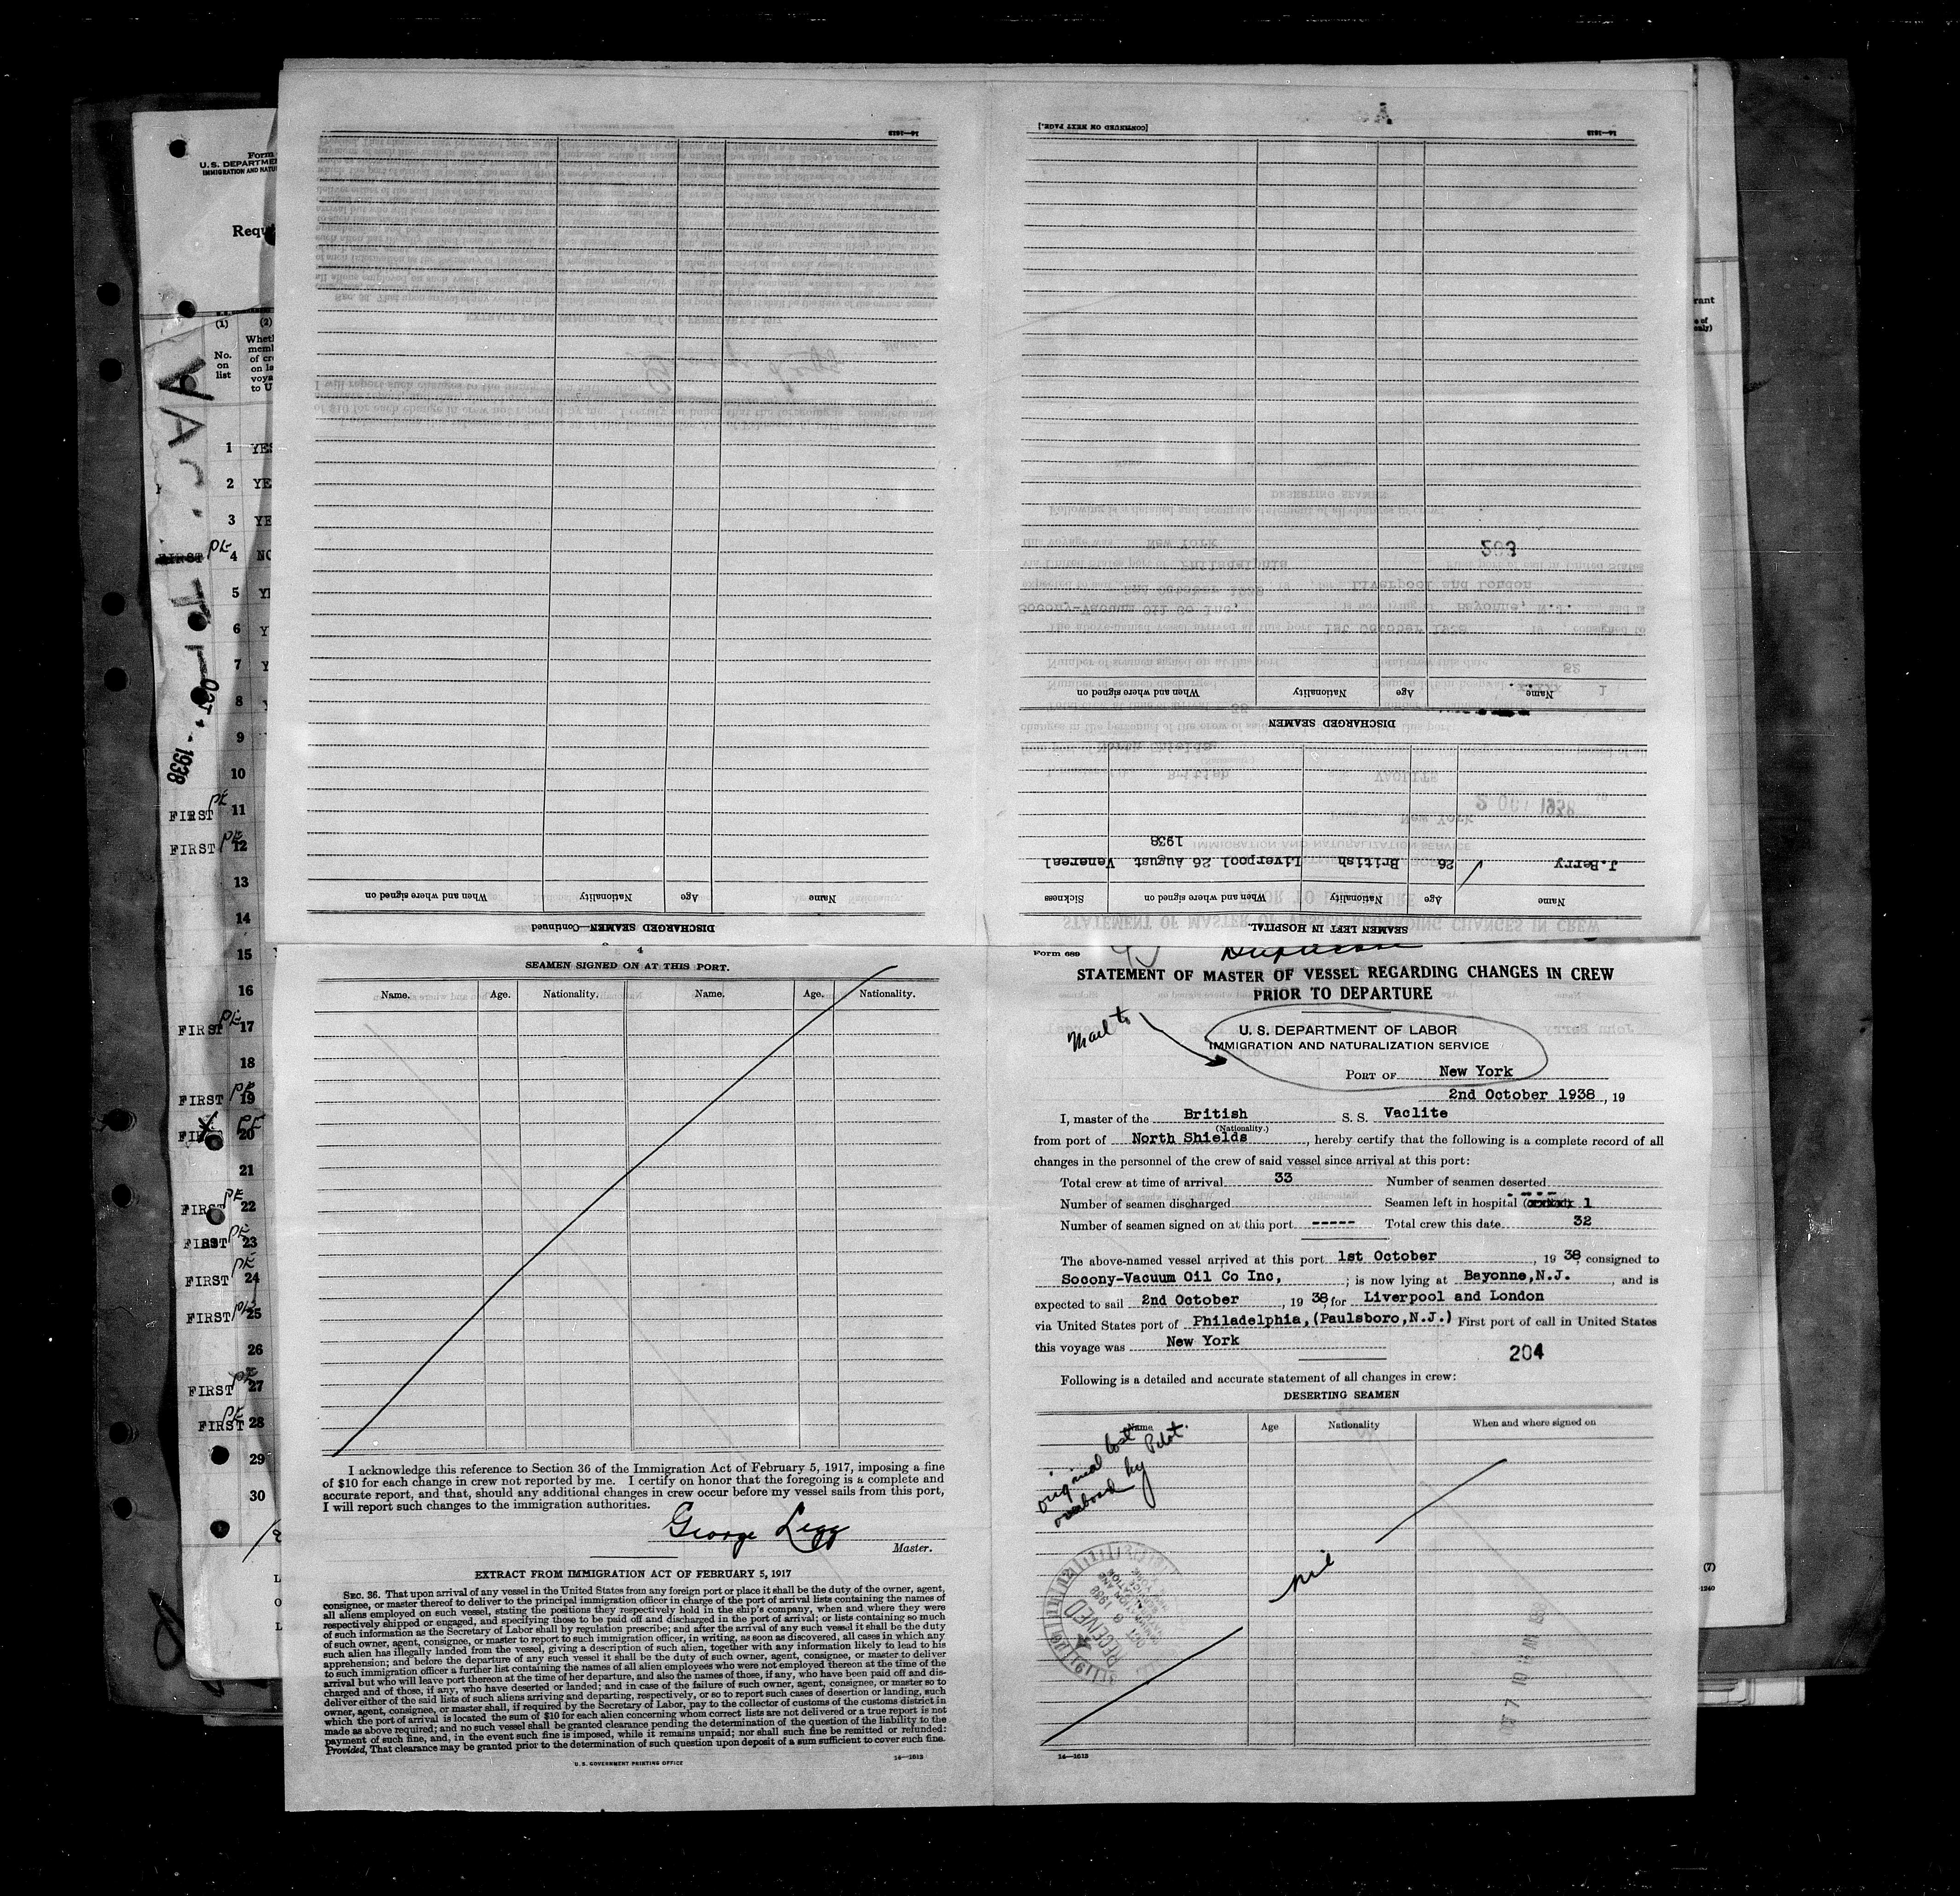 Form
U. S. DEPARTME
IMMIGRATION AND NATU
Requ
(1)
(2)
No.
on
list
Wheth
memb
of cre
on la
voya
to U
1 YES
2 YE
3 YE
FIRST PE 4 NO
5 Y
6 Y
7 Y
8
9
10
FIRST PE 11
FIRST PE 12
13
14
15
16
FIRST PE 17
18
FIRST PE 19
PE 20
21
FIRST PE 22
FIRST PE 23
FIRST PE 24
FIRST PE 25
26
FIRST PE 27
FIRST PE 28
29
30
VACLITE
OCT. - 1938
16—1613
DISCHARGED SEAMEN—Continued
Name
Age
Nationality
When and where signed on
[CONTINUED ON NEXT PAGE.]
16—1613
203
SEAMEN LEFT IN HOSPITAL.
Name
Age
Nationality
When and where signed on
Sickness
J.Berry 26 British Liverpool 26 August Venereal
1938
DISCHARGED SEAMEN
Name
Age
Nationality
When and where signed on
4
SEAMEN SIGNED ON AT THIS PORT.
Name. Age. Nationality. Name. Age. Nationality.
I acknowledge this reference to Section 36 of the Immigration Act of February 5, 1917, imposing a fine
of $10 for each change in crew not reported by me. I certify on honor that the foregoing is a complete and
accurate report, and that, should any additional changes in crew occur before my vessel sails from this port,
I will report such changes to the immigration authorities.
George Legg
Master.
EXTRACT FROM IMMIGRATION ACT OF FEBRUARY 5, 1917
SEC. 36. That upon arrival of any vessel in the United States from any foreign port or place it shall be the duty of the owner, agent,
consignee, or master thereof to deliver to the principal immigration officer in charge of the port of arrival lists containing the names of
all aliens employed on such vessel, stating the positions they respectively hold in the ship's company, when and where they were
respectively shipped or engaged, and specifying those to be paid off and discharged in the port of arrival; or lists containing so much
of such information as the Secretary of Labor shall by regulation prescribe; and after the arrival of any such vessel it shall be the duty
of such owner, agent, consignee, or master to report to such immigration officer, in writing, as soon as discovered, all cases in which any
such alien has illegally landed from the vessel, giving a description of such alien, together with any information likely to lead to his
apprehension; and before the departure of any such vessel it shall be the duty of such owner, agent, consignee, or master to deliver
to such immigration officer a further list containing the names of all alien employees who were not employed thereon at the time of the
arrival but who will leave port thereon at the time of her departure, and also the names of those, if any, who have been paid off and dis-
charged and of those, if any, who have deserted or landed; and in case of the failure of such owner, agent, consignee, or master so to
deliver either of the said lists of such aliens arriving and departing, respectively, or so to report such cases of desertion or landing, such
owner, agent, consignee, or master shall, if required by the Secretary of Labor, pay to the collector of customs of the customs district in
which the port of arrival is located the sum of $10 for each alien concerning whom correct lists are not delivered or a true report is not
made as above required; and no such vessel shall be granted clearance pending the determination of the question of the liability to the
payment of such fine, and, in the event such fine is imposed, while it remains unpaid; nor shall such fine be remitted or refunded:
Provided, That clearance may be granted prior to the determination of such question upon deposit of a sum sufficient to cover such fine.
U. S. GOVERNMENT PRINTING OFFICE
16—1613
Form 689
Duplicate
STATEMENT OF MASTER OF VESSEL REGARDING CHANGES IN CREW
PRIOR TO DEPARTURE
Mail to
U. S. DEPARTMENT OF LABOR
IMMIGRATION AND NATURALIZATION SERVICE
PORT OF New York
2nd October 1938, 19
I, master of the British S. S. Vaclite
(Nationality.)
from port of North Shields, hereby certify that the following is a complete record of all
changes in the personnel of the crew of said vessel since arrival at this port:
Total crew at time of arrival 33 Number of seamen deserted
Number of seamen discharged Seamen left in hospital 1
Number of seamen signed on at this port ----- Total crew this date 32
The above-named vessel arrived at this port 1st October, 19 38, consigned to
Socony-Vacuum Oil Co Inc, ; is now lying at Bayonne,N.J., and is
expected to sail 2nd October, 19 38, for Liverpool and London
via United States port of Philadelphia,(Paulsboro,N.J.) First port of call in United States
this voyage was New York
204
Following is a detailed and accurate statement of all changes in crew:
DESERTING SEAMEN
Name Age Nationality When and where signed on
original lost
overboard by Pilot.
nil
RECEIVED
OCT 1938
16—1613